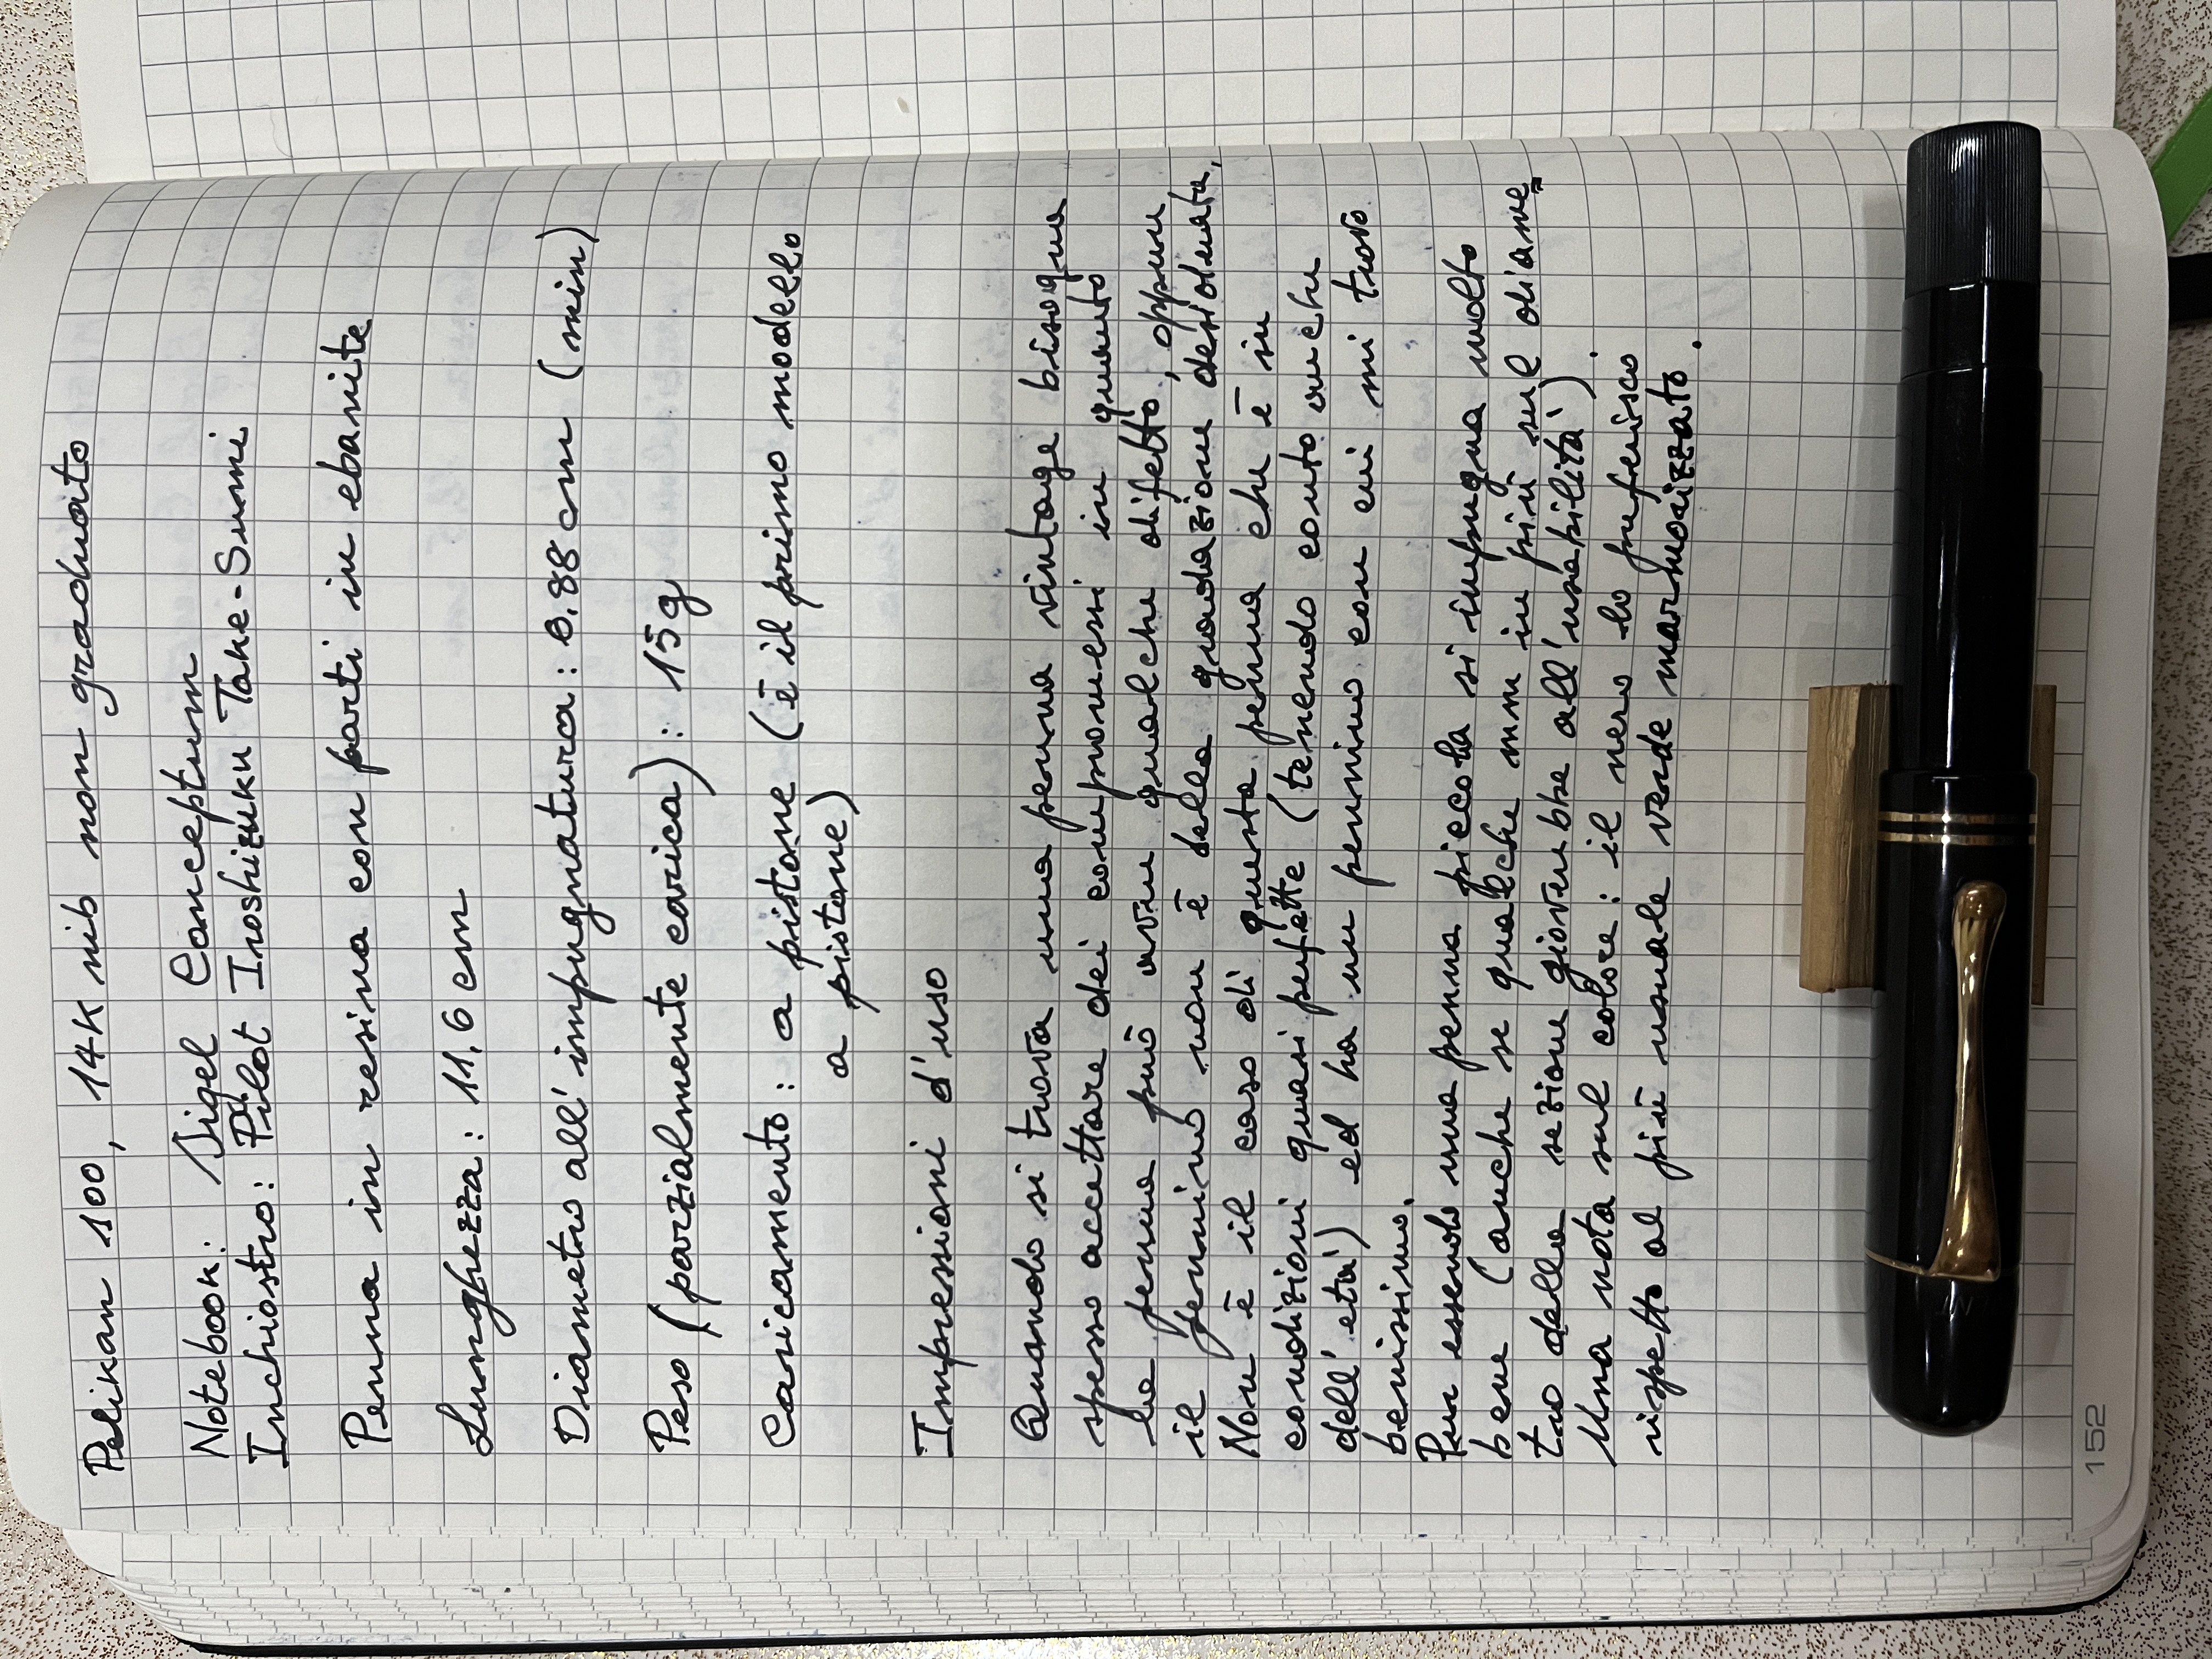 Pelikan 100, 14K nib non graduato
Notebook: Sigel Conceptum
Inchiostro: Pilot Iroshizuku Take-Sumi
Penna in resina con parti in ebanite
Lunghezza: 11,6 cm
Diametro all'impugnatura: 0.88 cm (min)
Peso (parzialmente carica): 15 g
Caricamento: a pistone (è il primo modello
a pistone)
Impressioni d'uso
Quando si trova una penna vintage bisogna
spesso accettare dei compromessi in quanto
la penna può avere qualche difetto, oppure
il pennino non è della gradazione desiderata,
Non è il caso di questa penna che è in
condizioni quasi perfette (tenendo conto anche
dell'età) ed ha un pennino con cui mi trovo
benissimo.
Pur essendo una penna piccola si impugna molto
bene (anche se qualche mm in più sul diame
tro della sezione gioverebbe all'usabilità).
Una nota sul colore: il nero lo preferisco
rispetto al più usuale verde marmorizzato.
152